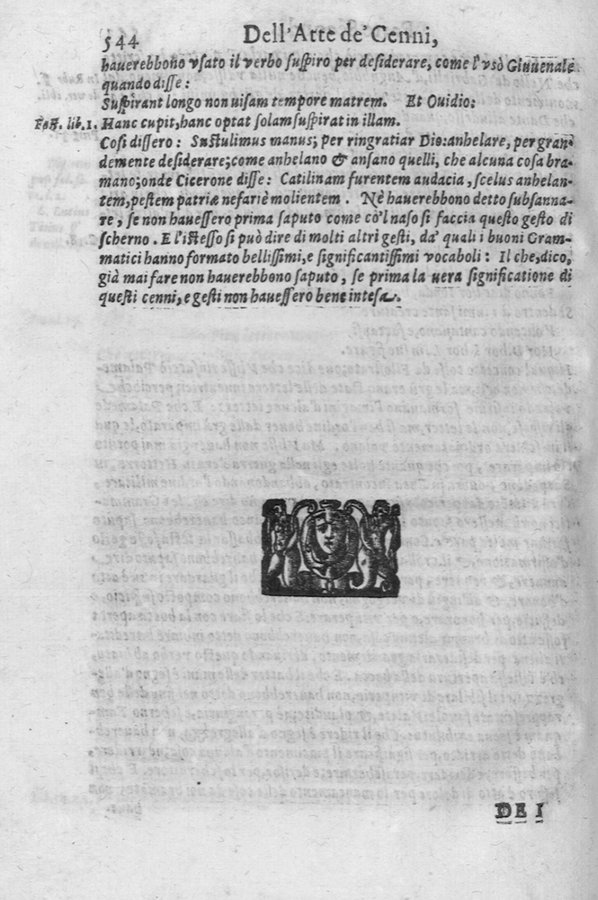 544 Dell'Arte de' Cenni,
hauerebbono vsato il verbo suspiro per desiderare, come l'vsò Giuuenale
quando disse:
Suspirant longo non uisam tempore matrem. Et Ouidio:
Fast. lib. 1. Hanc cupit, hanc optat solam suspirat in illam.
Cosi dissero: Sustulimus manus; per ringratiar Dio: anhelare, per gran
demente desiderare; come anhelano & ansano quelli, che alcuna cosa bra-
mano; onde Cicerone disse: Catilinam furentem audacia, scelus anhelan-
tem, pestem patriæ nefariè molientem. Nè hauerebbono detto subsanna-
re, se non hauessero prima saputo come co'l naso si faccia questo gesto di
scherno. E l'istesso si può dire di molti altri gesti, da' quali i buoni Gram-
matici hanno formato bellissimi, e significantissimi vocaboli: Il che, dico,
già mai fare non hauerebbono saputo, se prima la uera significatione di
questi cenni, e gesti non hauessero bene intesa.
DE I